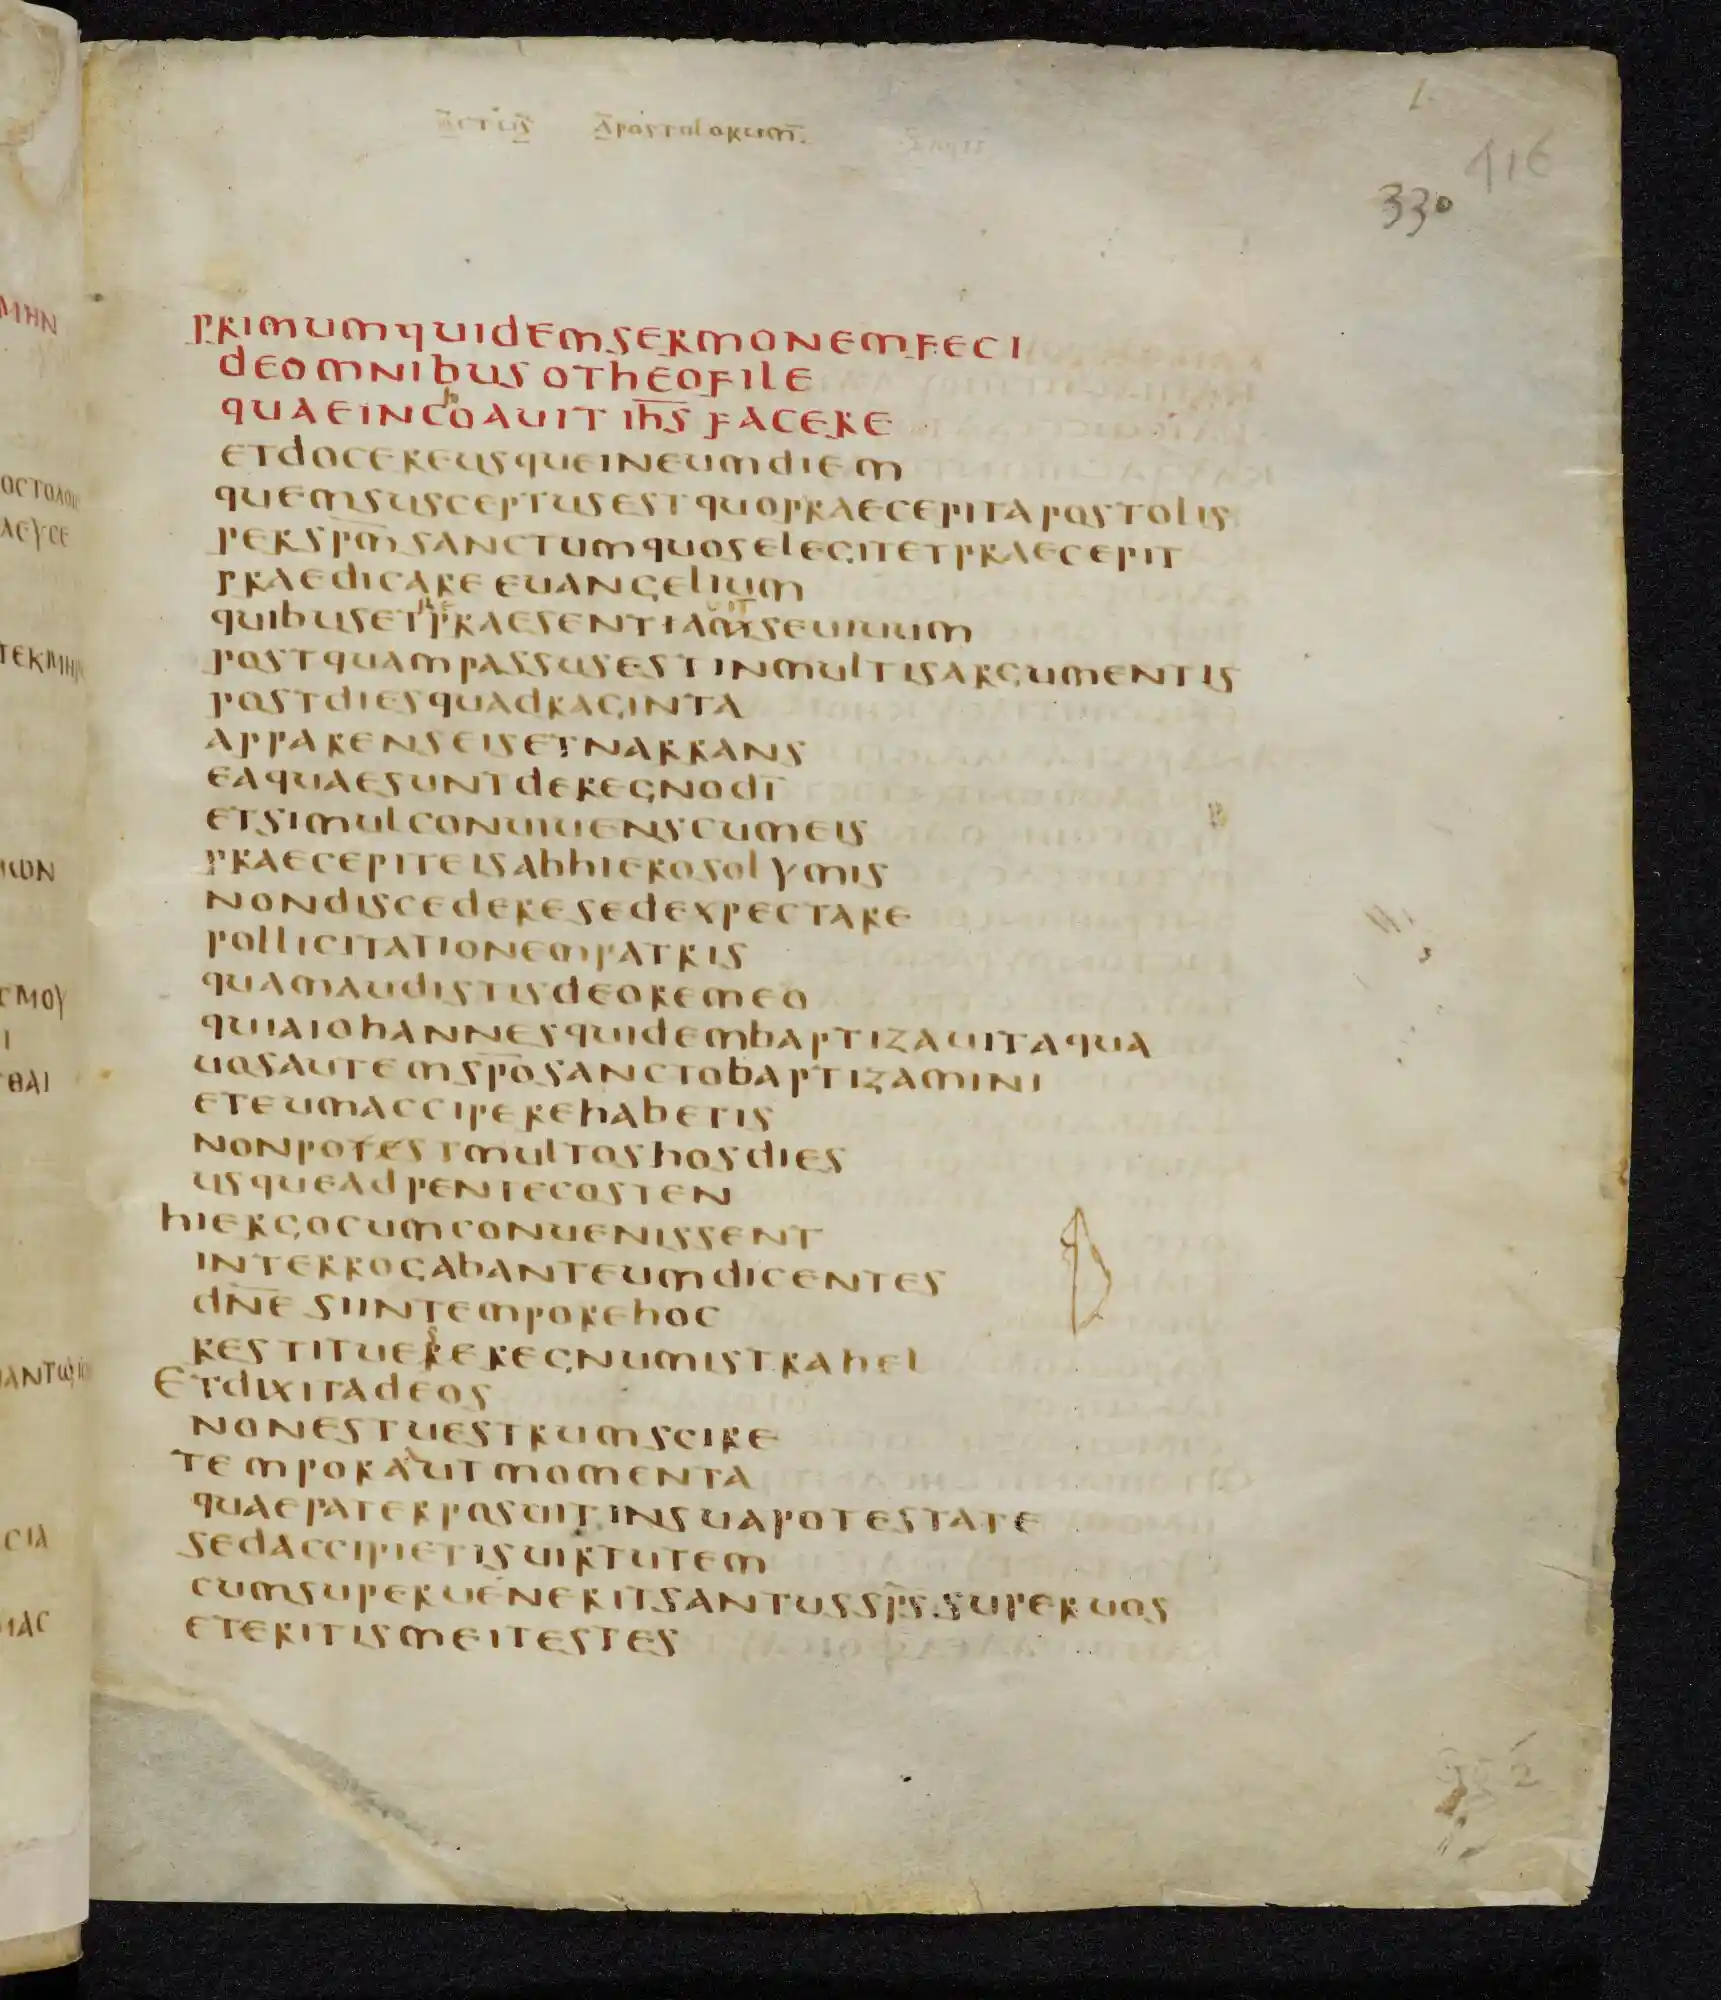 ACTUS APOSTOLORUM.
1.
416
330
PRIMUMQUIDEMSERMONEMFECI
DEOMNIBUS OTHEOFILE
QUAEINCHOAUIT IHS FACERE
ETDOCEREUSQUEINEUMDIEM
QUEMSUSCEPTUSESTQUOPRAECEPITAPOSTOLIS
PERSPMSANCTUMQUOSELEGITETPRAECEPIT
PRAEDICAREEUANGELIUM
QUIBUSETPRAESENTIAMSEUIUUM
POSTQUAMPASSUSESTINMULTISARGUMENTIS
POSTDIESQUADRAGINTA
APPARENSEISETNARRANS
EAQUAESUNTDEREGNODI
ETSIMULCONUIUENSCUMEIS
PRAECEPITEISABHIEROSOLYMIS
NONDISCEDERESEDEXPECTARE
POLLICITATIONEMPATRIS
QUAMAUDISTISDEOREMEO
QUIAIOHANNESQUIDEMBAPTIZAUITAQUA
UOSAUTEMSPOSANCTOBAPTIZAMINI
ETEUMACCIPEREHABETIS
NONPOTESTMULTOSHOSDIES
USQUEADPENTECOSTEN
HIERGOCUMCONUENISSENT
INTERROGABANTEUMDICENTES
DNE SIINTEMPOREHOC
RESTITUEREREGNUMISTRAHEL
ETDIXITADEOS
NONESTUESTRUMSCIRE
TEMPORAAUTMOMENTA
QUAEPATERPOSUITINSUAPOTESTATE
SEDACCIPIETISUIRTUTEM
CUMSUPERUENERITSANTUSSPS.SUPERUOS
ETERITISMEITESTES